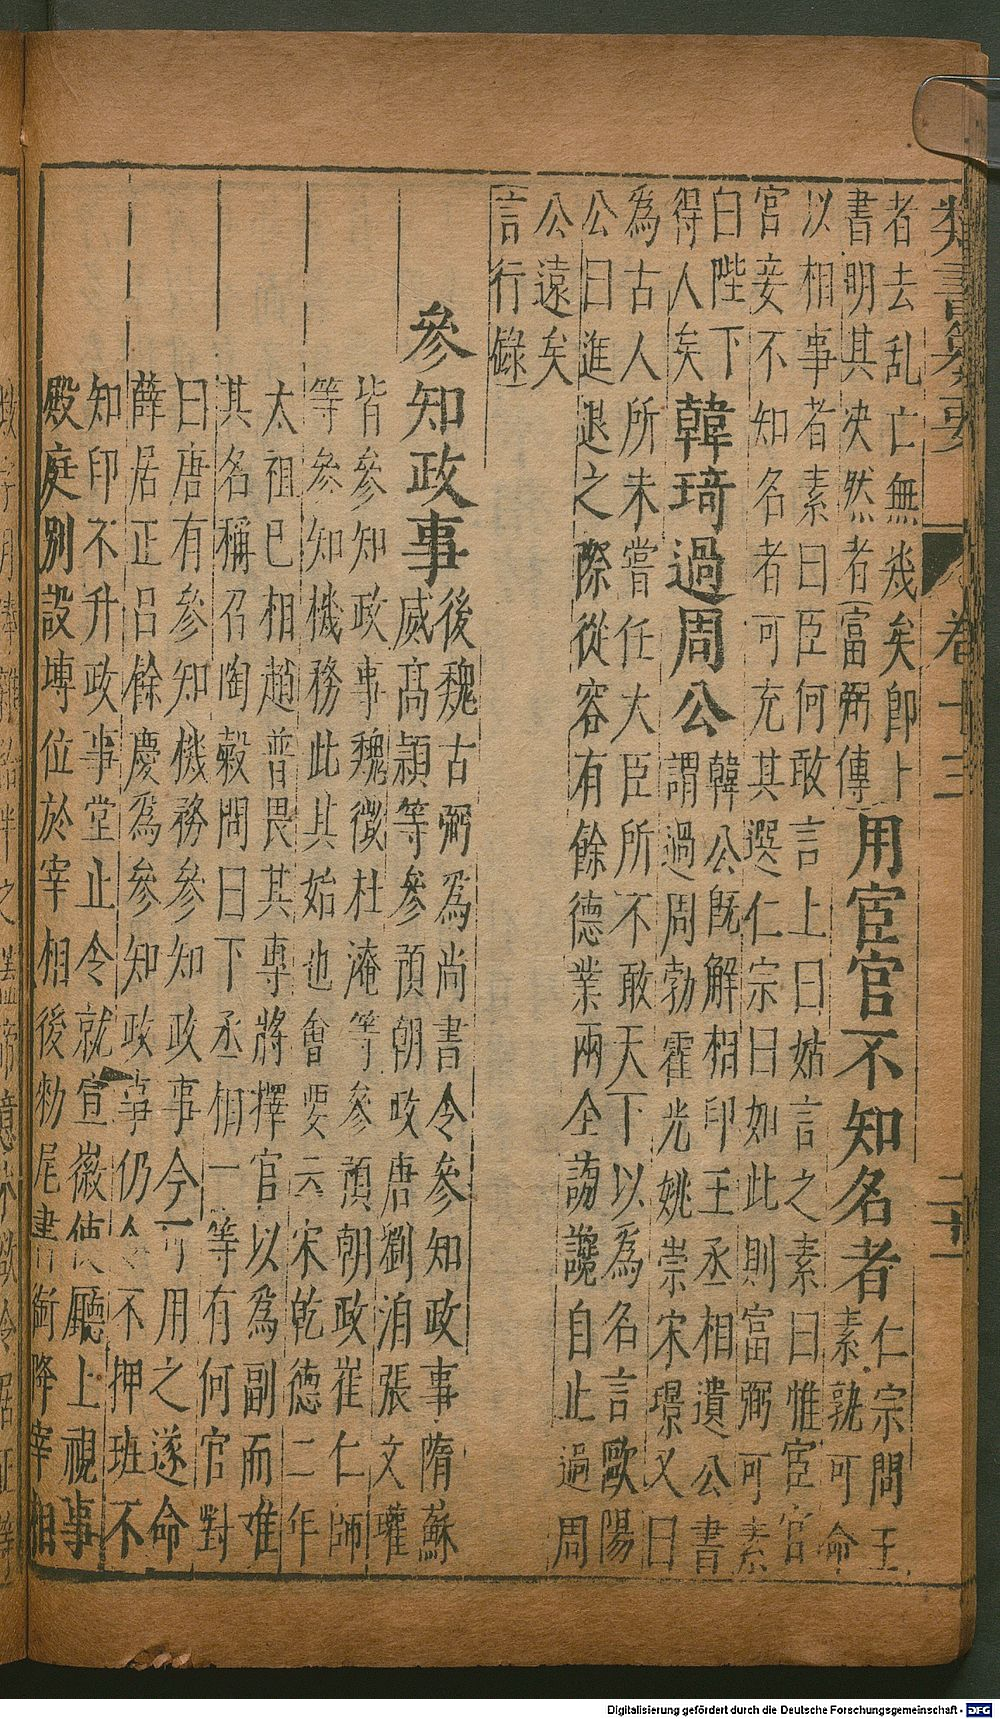 類書纂要 卷十三
者去乱亡無幾矣即卜
書明其决然者富弼傳
用宦官不知名者
仁宗問王
素孰可命
以相事者素曰臣何敢言上曰姑言之素曰惟宦官
宮妾不知名者可充其選仁宗曰如此則富弼可素
白陛下
得人矣
韓琦過周公
韓公既解相印王丞相遺公書
謂過周勃霍光姚崇宋璟又曰
為古人所未嘗任大臣所不敢天下以為名言歐陽
公曰進退之際從容有餘德業兩全謗讒自止過周
公遠矣
言行錄
參知政事
後魏古弼為尚書令參知政事隋蘇
威高熲等參預朝政唐劉洎張文瓘
皆參知政事魏徵杜淹等參預朝政崔仁師
等參知機務此其始也會要云宋乾德二年
太祖已相趙普畏其專將擇官以為副而难
其名稱召陶穀問曰下丞相一等有何官對
曰唐有參知機務參知政事今可用之遂命
薛居正呂餘慶為參知政事仍不押班不
知印不升政事堂止令就宣徽使廳上視事
殿庭別設塼位於宰相後勑尾書銜降宰相
Digitalisierung gefördert durch die Deutsche Forschungsgemeinschaft - DFG